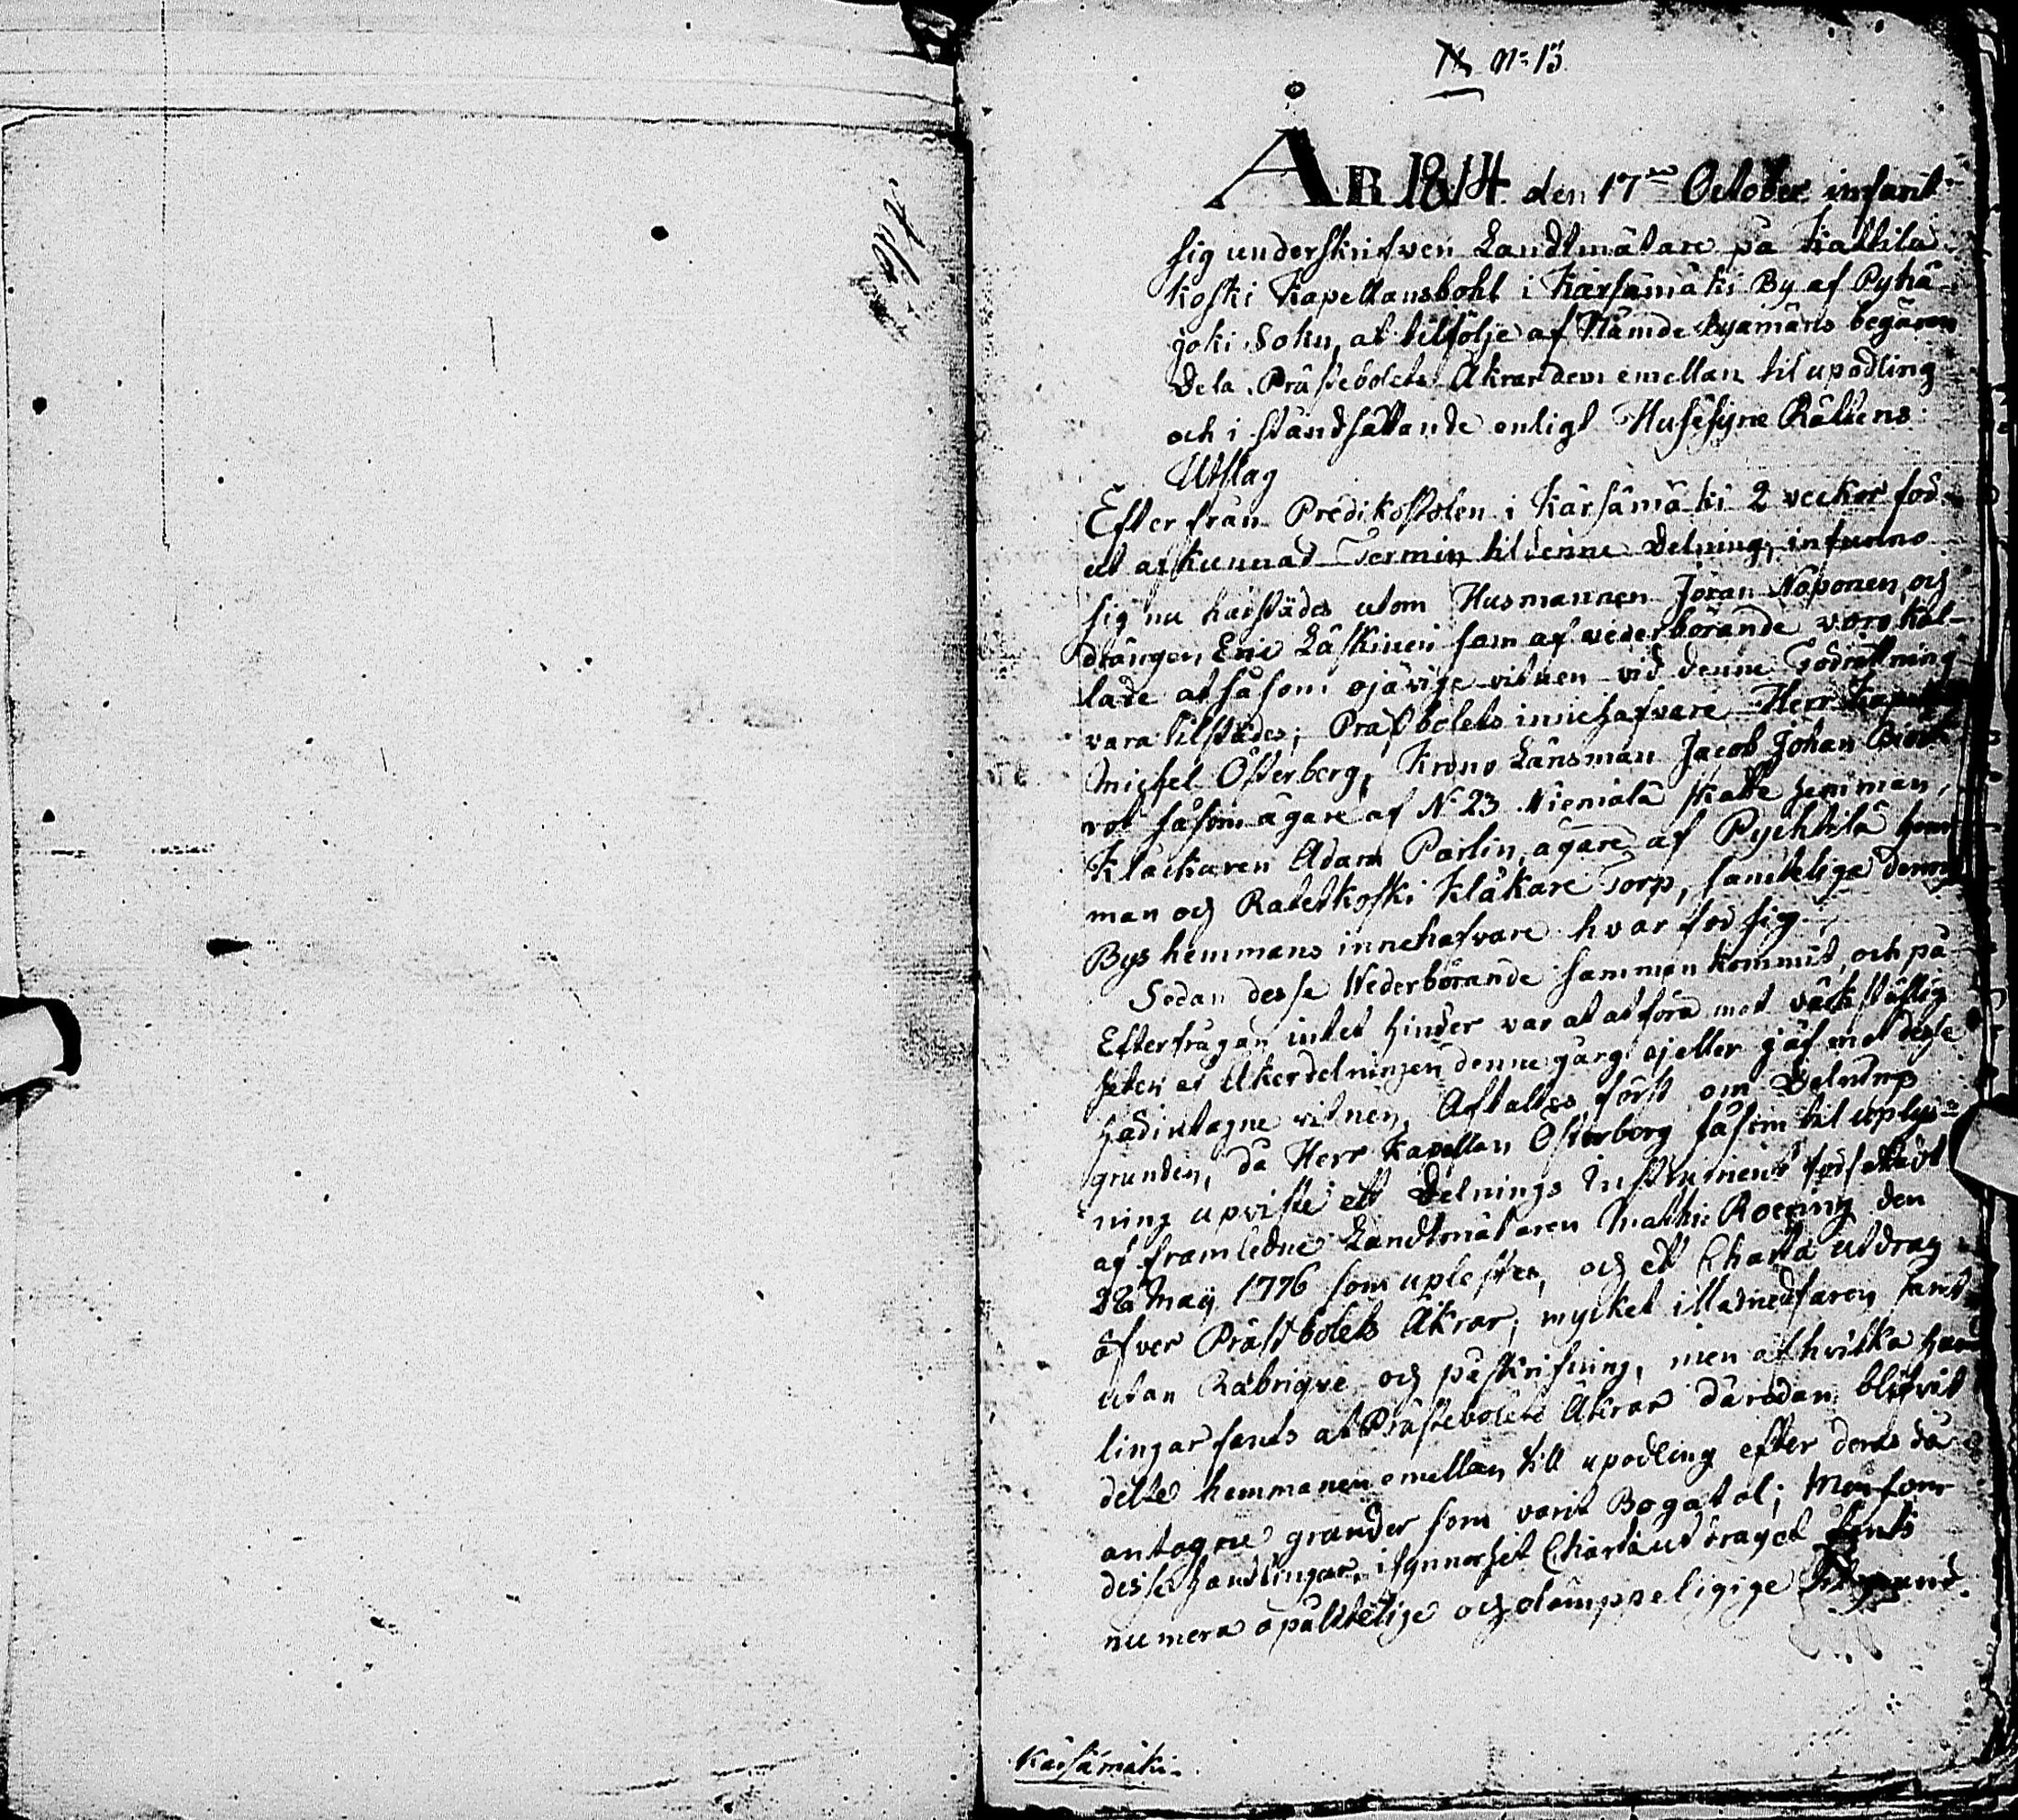 N: 13.
ÅR 1814 den 17de October infant
sig underskrifven Landtmätare på Kattila
koski Kapellansbohl i Kärsämäki By af Pyhä-
joki Sokn, at tilfölje af Nämde Byamäns begäran
dela Prästebolets Åkrar dem emellan til upodling
och i ståndsättande enligt Husesyne Rättens
Utslag
Efter från Predikostolen i Kärsämäki 2 veckor för
ut afkunnad Termin til denne Delning, infunno
sig nu härstädes utom Husmannen Jöran Näponen, och
drängen Eric Läskinen som af vederbörande voro kal-
lade at såsom ojäfvige vitnen vid denne Förrättning
vara tilstädes; Prästbolets innehafvare Herr
Michel Österberg, Krono Länsman Jacob Johan
såsom ägare af N: 23 Niemälä skatte hemman,
Klåckaren Adam Parlin, ägare af Pyhhälä hem
man och Ratetkoski Klåkare Torp, samtelige denne
Bys hemmans innehafvare hvar för sig.
Sedan desse Wederbörande sammankommit, och på
Efterfrågan intet hinder var at anföra mot värkställig
heten af Åkerdelningen denne gång ej eller jäf mot desse
vitnen, Aftaltes först om Delnings
grunden, då Herr Kapellan Österberg såsom til uplys-
ning upviste ett Delnings Instrument författadt
af framledne Landtmätaren Matthie Roering den
28 Maij 1776 som uplästes, och ett Charta Utdrag
öfver Prästbolets Åkrar, mycket illa medfaren samt
utan Rubriqve och påskrifning, men af hvilka hand
lingar fants at Prästebolets Åkrar däredan blifvit
delte hemmanen emellan till upodling efter deras då
antagne grunder som varit Bogatal; Men som
desse handlingar, isynnerhet Charta utdraget fants
numera opålitelige och olämppeligige
Kärsämäki.